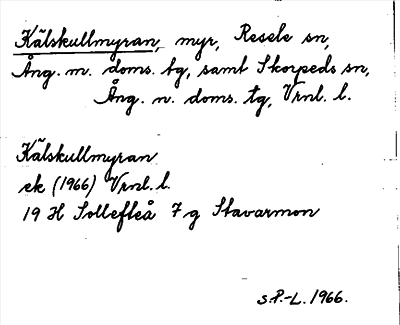 Kälskullmyran, myr, Resele sn,
Ång. m. doms. tg, samt Skorpeds sn,
Ång. n. doms. tg, Vrnl. l.
Kälskullmyran
ek (1966) Vrnl. l.
19 H Sollefteå 7 g Stavarmon
S.P.-L. 1966.